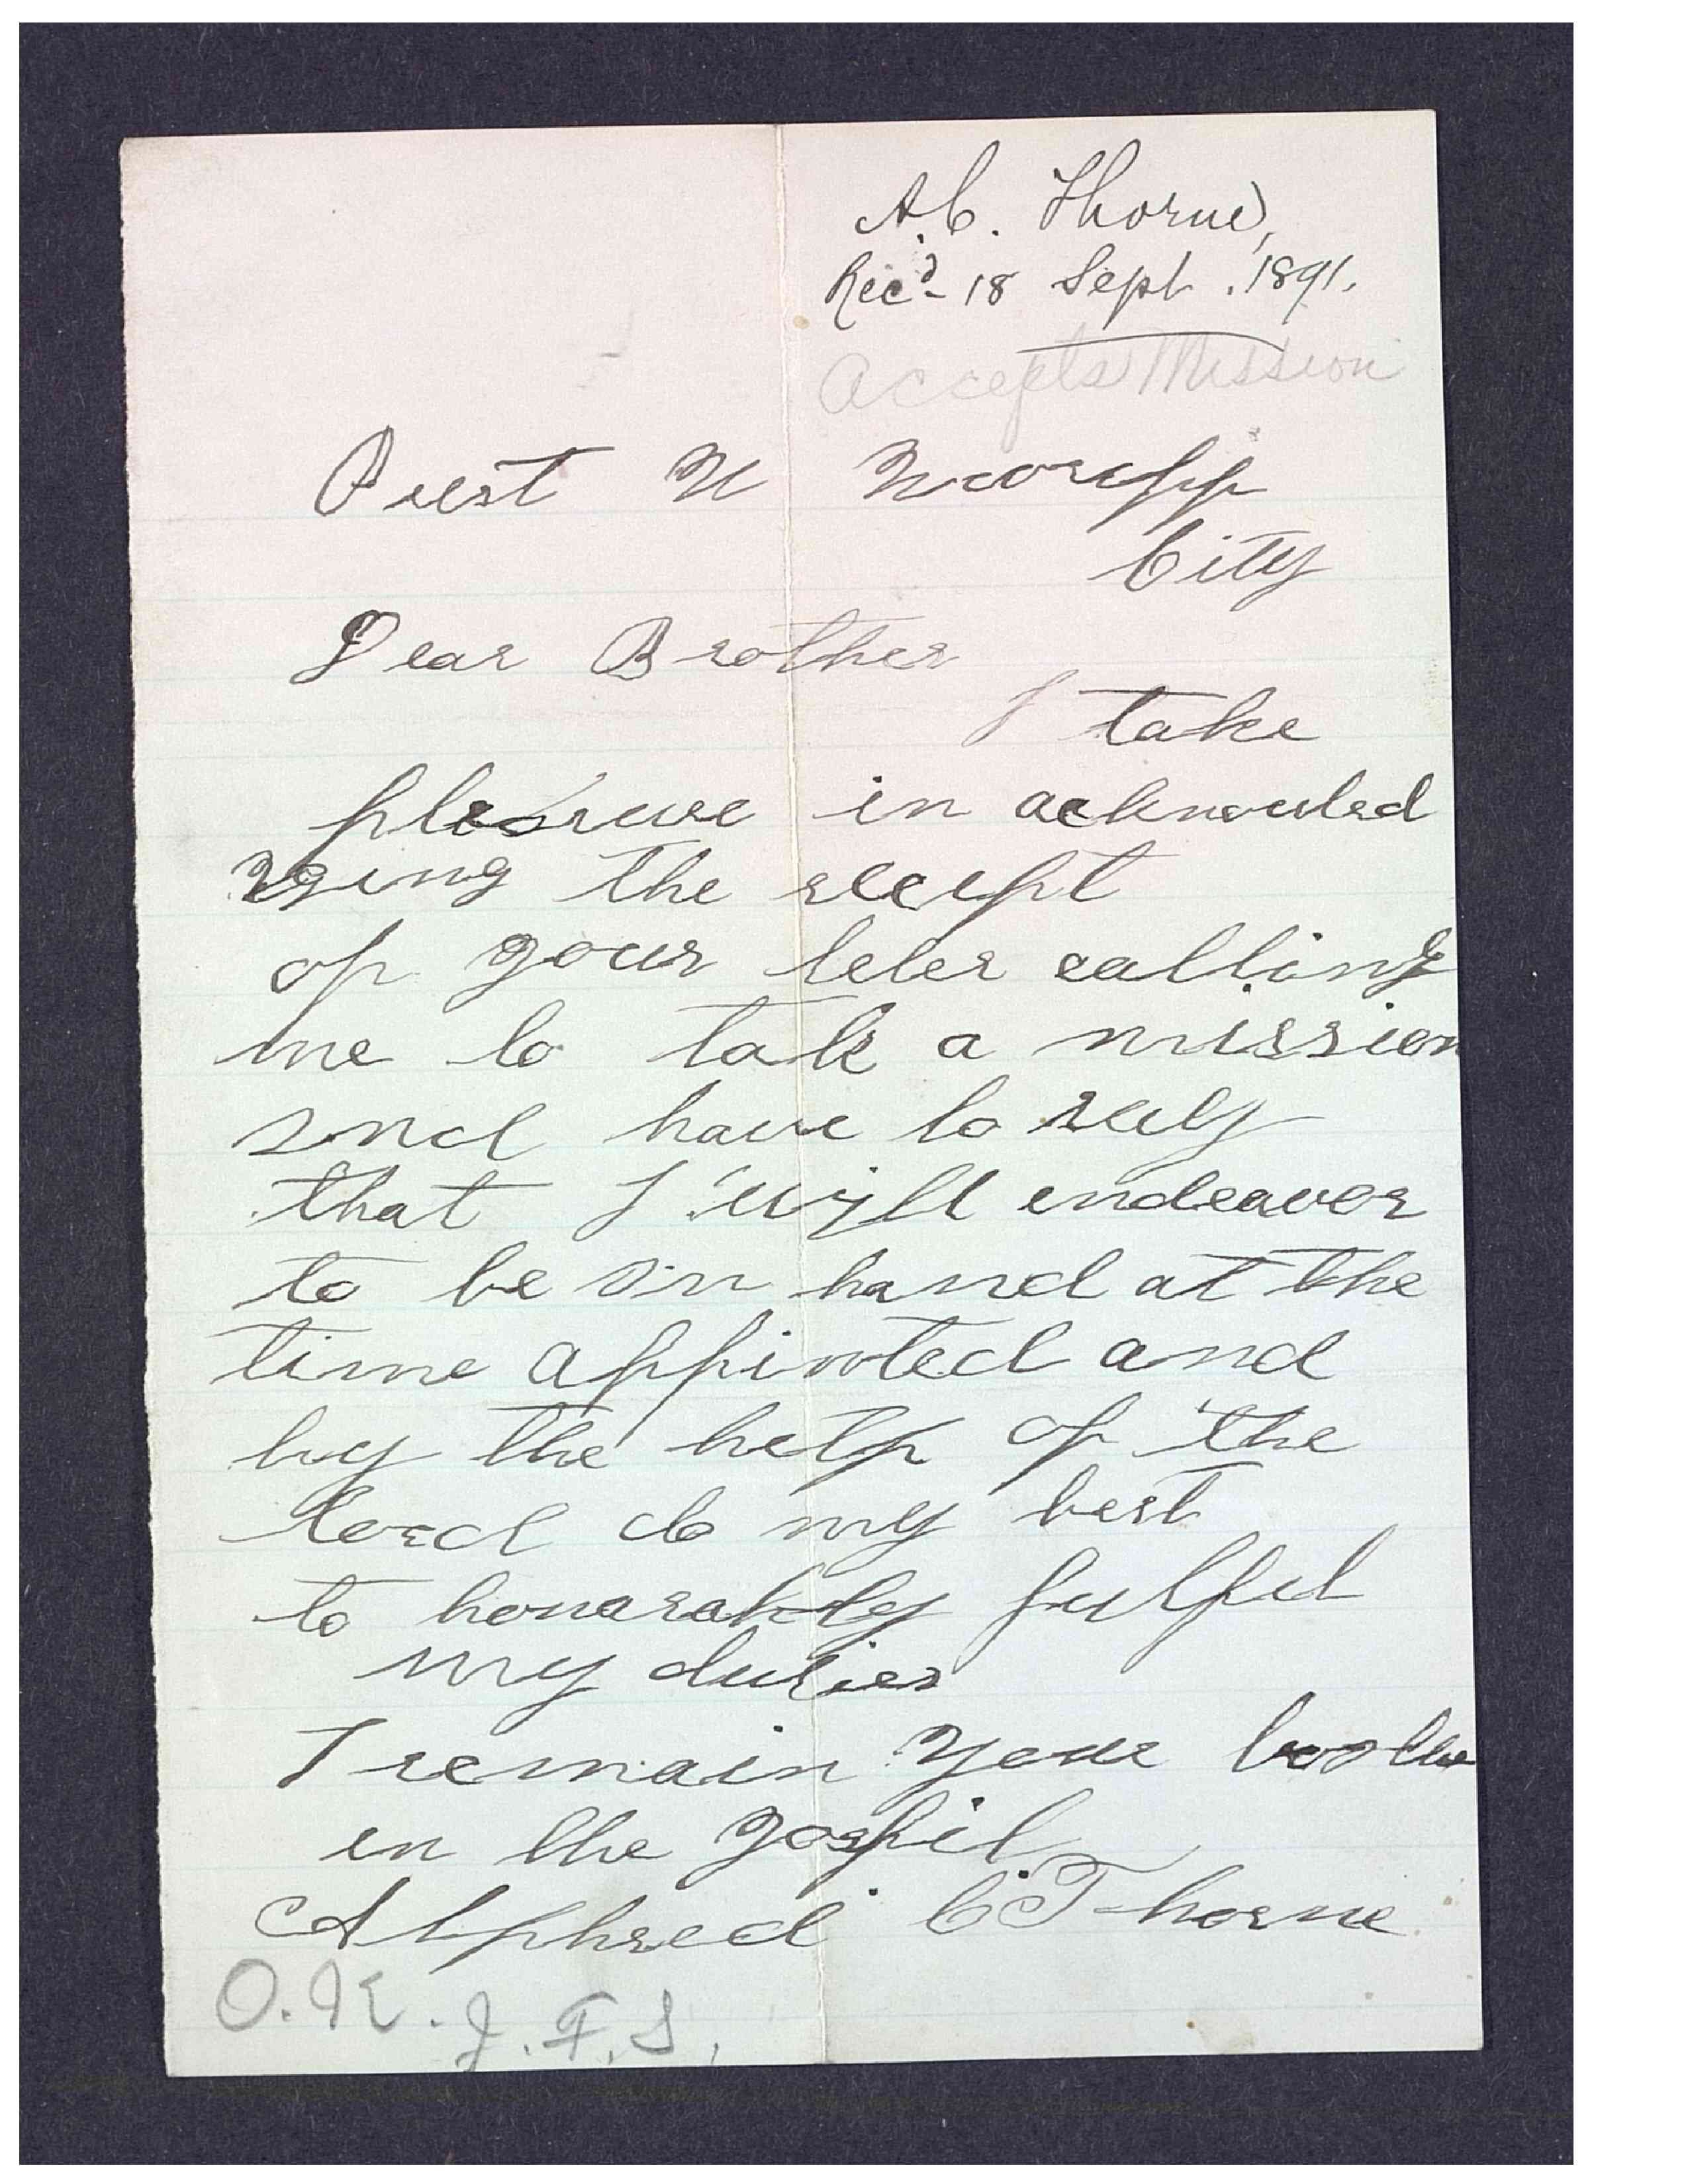 A.C. Thorne,
Rec'd- 18 Sept. 1891.
Accepts Mission
Prest W Woruff
City
Dear Brother
I take
plesure in acknowled
ging the recept
of your leter calling
me to take a mission
and have to say
that I will endeavor
to be on hand at the
time appinted and
by the help of the
Lord do my best
to honarably fulfil
my duties
I remain your brother
in the gospil
Alphred C Thorne
O.K. J.F.S.